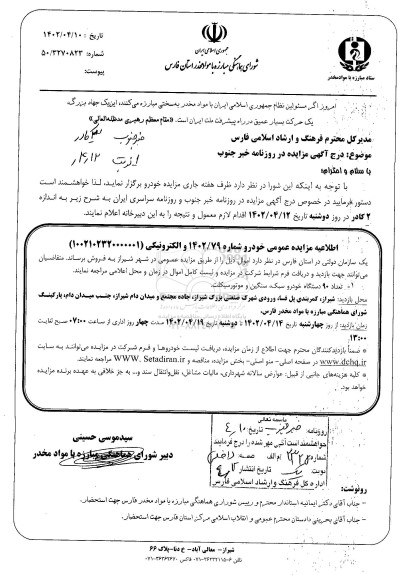 جمهوری اسلامی ایران
شورای هماهنگی مبارزه با مواد مخدر استان فارس
ستاد مبارزه با مواد مخدر
تاریخ : ۱۴۰۲/۰۴/۱۰
شماره: ۵۰/۳۲۷۰۸۲۳
پیوست:
امروز اگر مسئولین نظام جمهوری اسلامی ایران با مواد مخدر به‌سختی مبارزه می‌کنند، این‌یک جهاد بزرگ،
یک حرکت بسیار عمیق در راه پیشرفت ملت ایران است. «مقام معظم رهبری مدظله‌العالی»
مدیرکل محترم فرهنگ و ارشاد اسلامی فارس
موضوع: درج آگهی مزایده در روزنامه خبر جنوب
با سلام و احترام؛
با توجه به اینکه این شورا در نظر دارد ظرف هفته جاری مزایده خودرو برگزار نماید، لذا خواهشمند است
دستور فرمایید در خصوص درج آگهی مزایده در روزنامه خبر جنوب و روزنامه سراسری ایران به شرح زیر به اندازه
۲ کادر در روز دوشنبه تاریخ ۱۴۰۲/۰۴/۱۲ اقدام لازم معمول و نتیجه را به این دبیرخانه اعلام نمایند.
اطلاعیه مزایده عمومی خودرو شماره ۱۴۰۲/۷۹ و الکترونیکی (۱۰۰۲۱۰۲۳۲۰۰۰۰۰۰۱)
یک سازمان دولتی در استان فارس در نظر دارد اموال ذیل را از طریق مزایده عمومی در شهر شیراز به فروش برساند، متقاضیان
می‌توانند جهت بازدید و دریافت فرم شرایط شرکت در مزایده و لیست کامل اموال در زمان و محل اعلامی مراجعه نمایند.
۱- تعداد ۹۰ دستگاه خودرو سبک، سنگین و موتورسیکلت.
محل بازدید: شیراز، کمربندی پل فسا، ورودی شهرک صنعتی بزرگ شیراز، جاده مجتمع و میدان دام شیراز، جنب میدان دام، پارکینگ
شورای هماهنگی مبارزه با مواد مخدر فارس.
زمان بازدید: از روز چهارشنبه تاریخ ۱۴۰۲/۰۴/۱۴ تا دوشنبه تاریخ ۱۴۰۲/۰۴/۱۹ مدت چهار روز اداری از ساعت ۰۷:۰۰ صبح لغایت
۱۳:۰۰
* ضمناً بازدیدکنندگان محترم جهت اطلاع از زمان مزایده، دریافت لیست خودروها و فرم شرکت در مزایده می‌توانند به سایت
www.dchq.ir در صفحه اصلی- منو اصلی- بخش مزایده، مناقصه و WWW. Setadiran.ir مراجعه نمایند.
* کلیه هزینه‌های جانبی از قبیل: عوارض سالانه شهرداری، مالیات مشاغل، نقل‌وانتقال سند و.. به جز خلافی به عهده برنده مزایده
خواهد بود.
باسمه تعالی
روزنامه خبر جنوب تاریخ
خواهشمند است آگهی مهر شده را درج فرمایید
نوبت یک تاریخ انتشار
اداره کل فرهنگ و ارشاد اسلامی فارس
سیدموسی حسینی
دبیر شورای هماهنگی مبارزه با مواد مخدر
رونوشت:
- جناب آقای دکتر ایمانیه استاندار محترم و رییس شورای هماهنگی مبارزه با مواد مخدر فارس جهت استحضار.
- جناب آقای بحرینی دادستان محترم عمومی و انقلاب اسلامی مرکز استان فارس جهت استحضار.
شیراز- معالی آباد- خ دنا-پلاک ۶۶